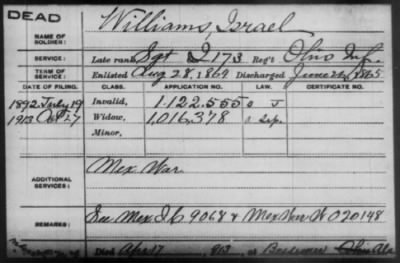 DEAD
Williams, Israel
NAME OF SOLDIER:
SERVICE: Late rank, Sgt I 173 Reg't Ohio Inf.
TERM OF SERVICE: Enlisted Aug 28, 1864 Discharged June 26, 1865
DATE OF FILING. CLASS. APPLICATION NO. LAW. CERTIFICATE NO.
1892 July 19 Invalid, 1.122.555 J
1913 Oct 27 Widow, 1,016,378 
Minor,
ADDITIONAL SERVICES: Mex War
REMARKS: See Mex I C 9068 & Mex War W O 20148
Died Apr 17, 913, at Ohio